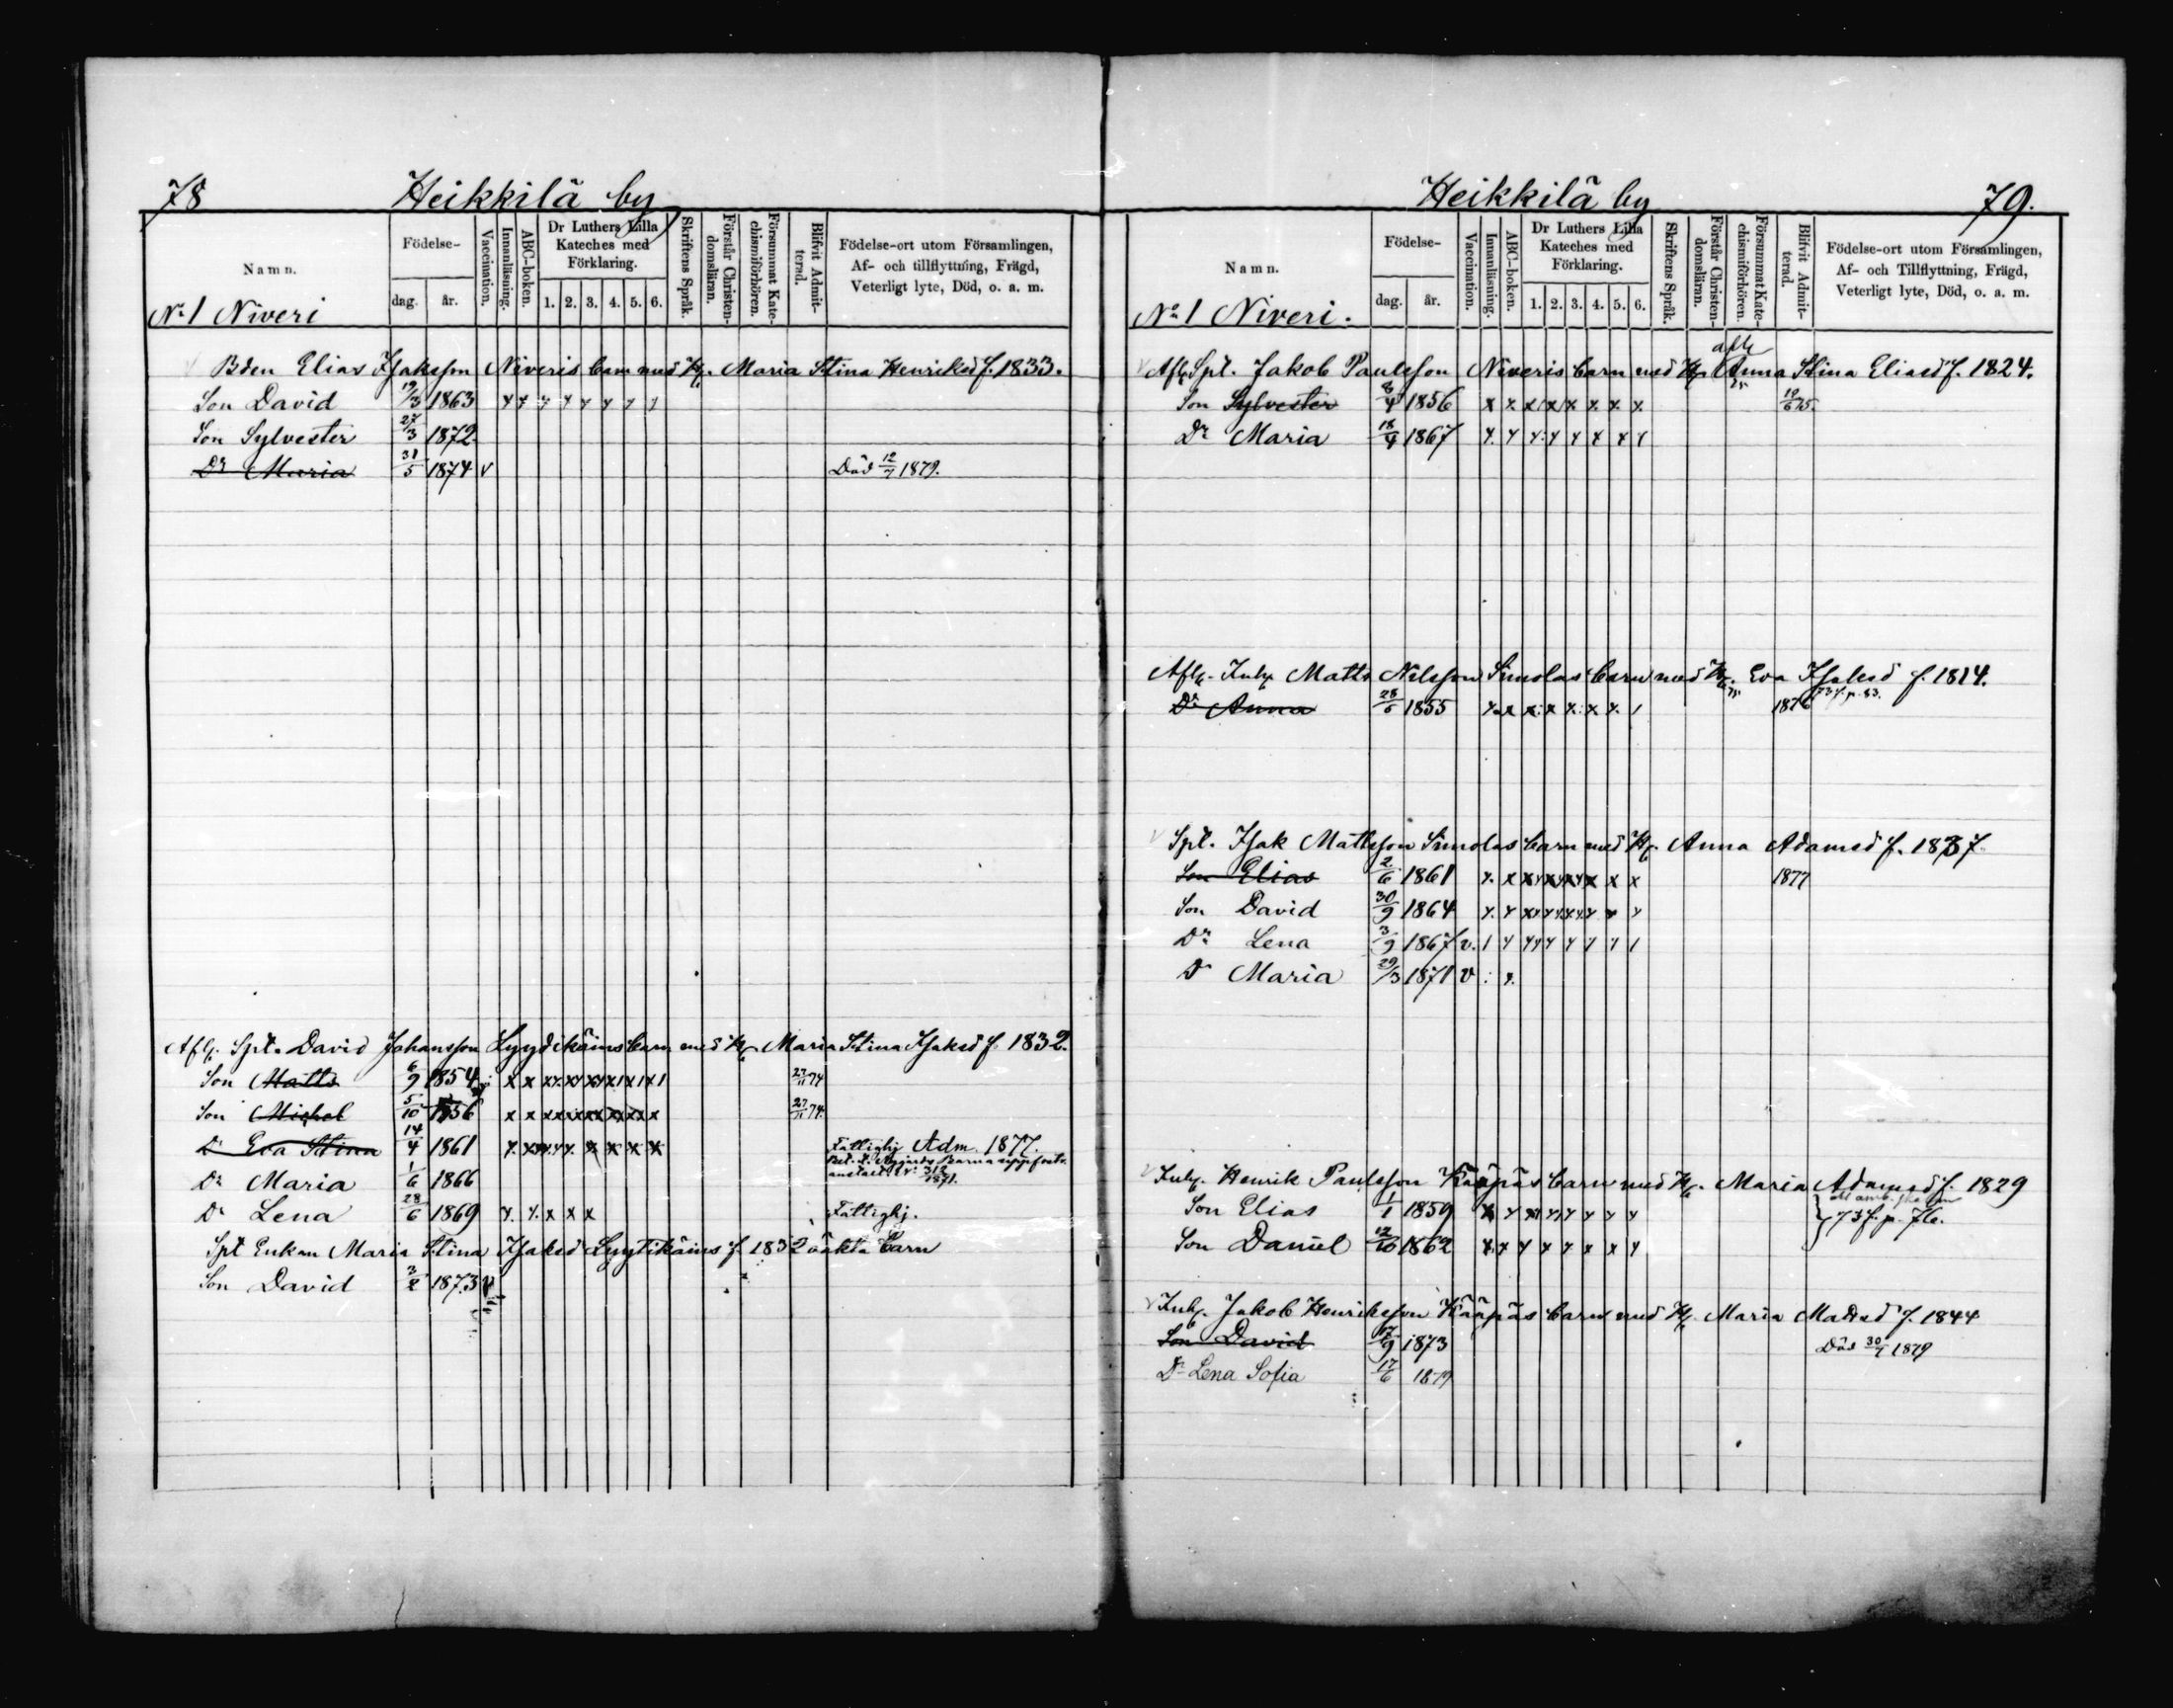 78 Heikkilä by
Namn. Födelse- dag. år. Vaccination. Innanläsning. ABC-boken. Dr Luthers Lilla Kateches med Förklaring. 1. 2. 3. 4. 5. 6. Skriftens Språk. Förstår Christendomsläran. Försummat Katechismiförhören. Blifvit Admitterad. Födelse-ort utom Församlingen, Af- och tillflyttning, Frägd, Veterligt lyte, Död, o. a. m.
No 1 Niveri
Bden Elias Isaksson Niveris barn med H. Maria Stina Henriksd f. 1833.
Son David 19/3 1863
Son Sylvester 27/3 1872
Dr Maria 31/5 1874 v Död 12/7 1879.
Afl. Spt. David Johansson Lyydikäins barn med H. Maria Stina Isaksd f. 1832.
Son Matts 6/9 1854 x x 27/11 74
Son Michel 5/10 1856 x x 27/11 74.
Dr Eva Stina 14/4 1861 Fattighj Adm. 1877.
Dr Maria 1/6 1866 312/1871.
Dr Lena 28/6 1869 x x x Fattighj.
Spt Enkan Maria Stina Isaksd Lyytikäins f. 1832 oäkta Barn
Son David 3/2 1873 v
Heikkilä by 79.
Namn. Födelse- dag. år. Vaccination. Innanläsning. ABC-boken. Dr Luthers Lilla Kateches med Förklaring. 1. 2. 3. 4. 5. 6. Skriftens Språk. Förstår Christendomsläran. Försummat Katechismiförhören. Blifvit Admitterad. Födelse-ort utom Församlingen, Af- och Tillflyttning, Frägd, Veterligt lyte, Död, o. a. m.
No 1 Niveri.
Afl. Spt. Jakob Paulsson Niveris barn med H. afl. Anna Stina Eliasd f. 1824.
Son Sylvester 8/4 1856 19/6 75.
Dr Maria 18/4 1867
Afl. Inh. Matts Nilsson Simolas barn med H. Eva Isaksd f. 1814.
Dr Anna 28/6 1855 1876 73 f. p. 83.
Spt. Isak Mattsson Simolas barn med H. Anna Adamsd f. 1837.
Son Elias 2/6 1861 1877
Son David 30/9 1864
Dr Lena 3/9 1867 v.
Dr Maria 29/3 1871 v
Inh. Henrik Paulsson Kääpäs barn med H. Maria Adamsd f. 1829
Son Elias 1/1 1859 73 f. p. 76.
Son Daniel 12/10 1862
Inh. Jakob Henriksson Kääpäs barn med H. Maria Mattsd f. 1844
Son David 17/9 1873 Död 30/7 1879
Dr Lena Sofia 17/6 1879